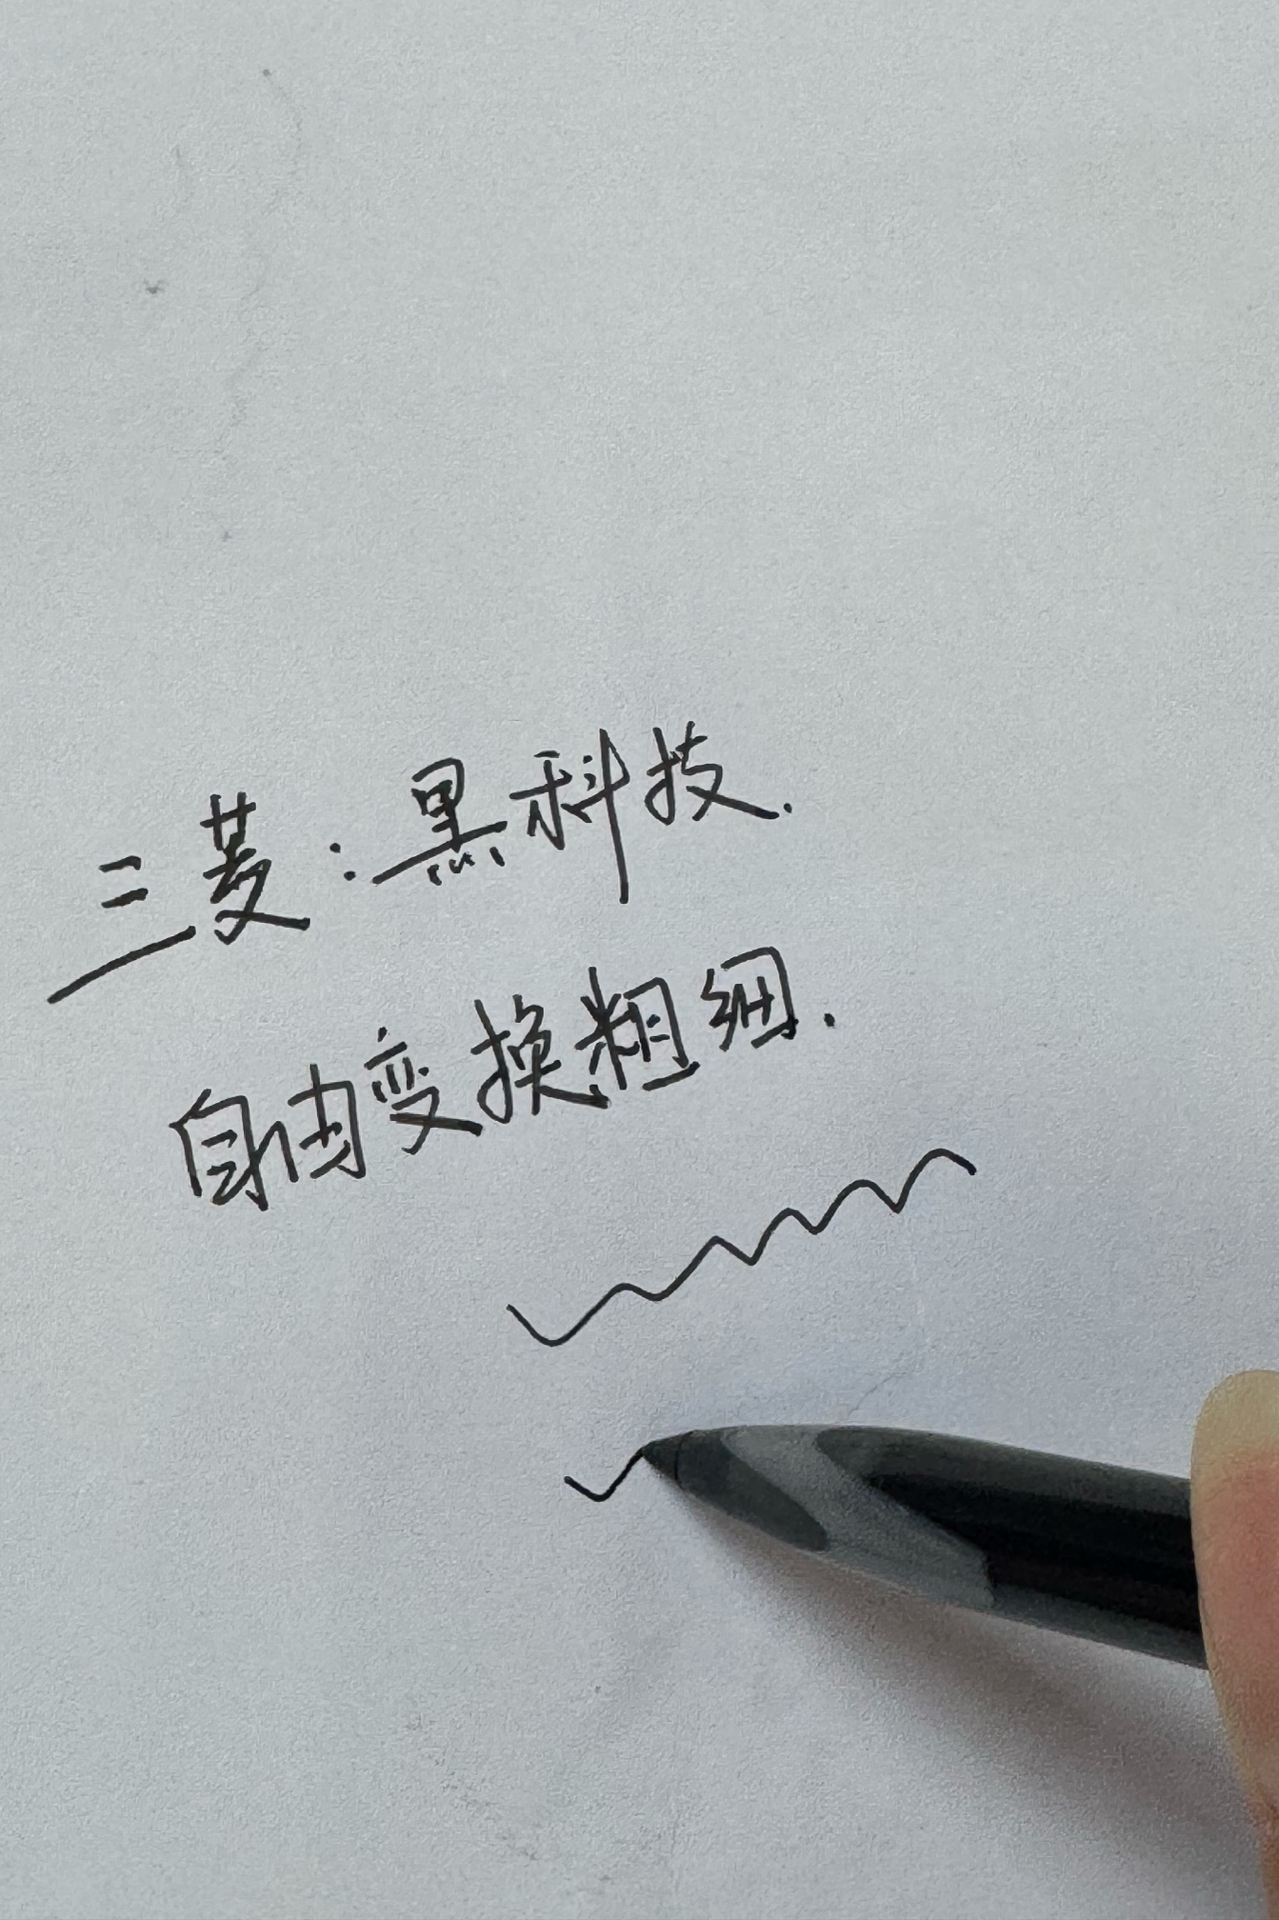 三菱:黑科技.
自由变换粗细.